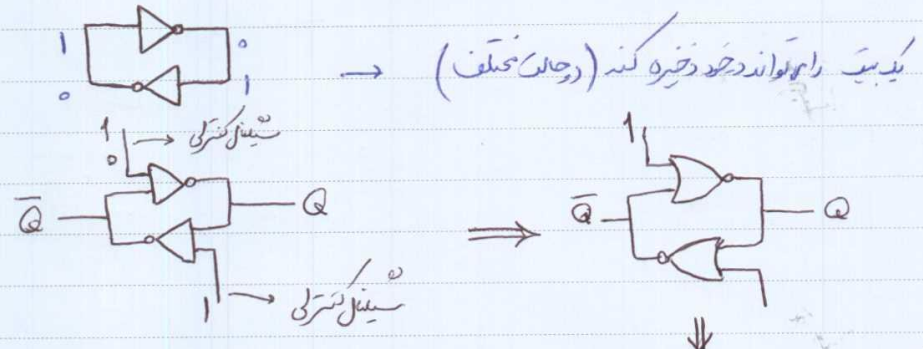 1 0 → یک بیت را می‌تواند در خود ذخیره کند (دو حالت مختلف)
0 1
1 → سیگنال کنترلی
0
Q̄ Q ⇒ 1 Q̄ Q
1 → سیگنال کنترلی
⇓